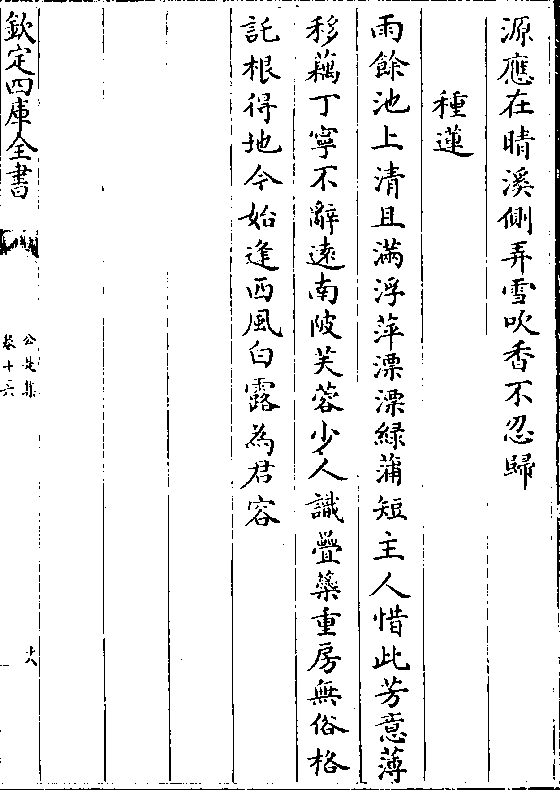 源應在晴溪側弄雪吹香不忍歸
種蓮
雨餘池上清且滿浮萍漂漂緑蒲短主人惜此芳意薄
移藕丁寧不辭逺南陂芙蓉少人識疊蘂重房無俗格
託根得地今始逢西風白露為君容
欽定四庫全書
公是集
卷十六